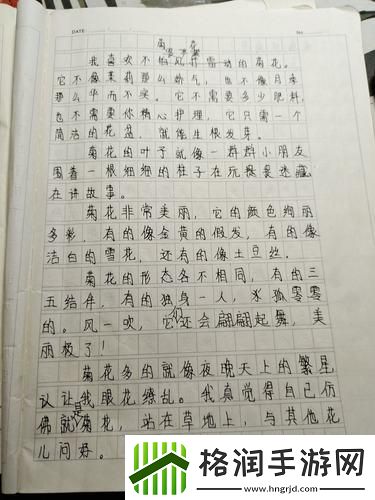 DATE
No.
菊花
我喜欢不怕风打雪动的菊花。
它不像茉莉那么娇气，也不像月季
那么华而不实。它不需要多少肥料，
也不需要你精心护理，它只需一个
简洁的花盆，就能生根发芽。
菊花的叶子就像一群群小朋友
围着一根细细的柱子在玩畏畏迷藏
在讲故事。
菊花非常美丽，它的颜色绚丽
多彩，有的像金黄的假发，有的像
洁白的雪花，还有的像土豆丝。
菊花的形态各不相同，有的三
五结伴，有的独身一人，孤零零
的。风一吹，它们还会翩翩起舞，美
丽极了！
菊花多的就像夜晚天上的繁星
认让我眼花缭乱。我真觉得自已仿
佛就是菊花，站在草地上，与其他花
儿问好。
格润手游网
www.hngrjd.com